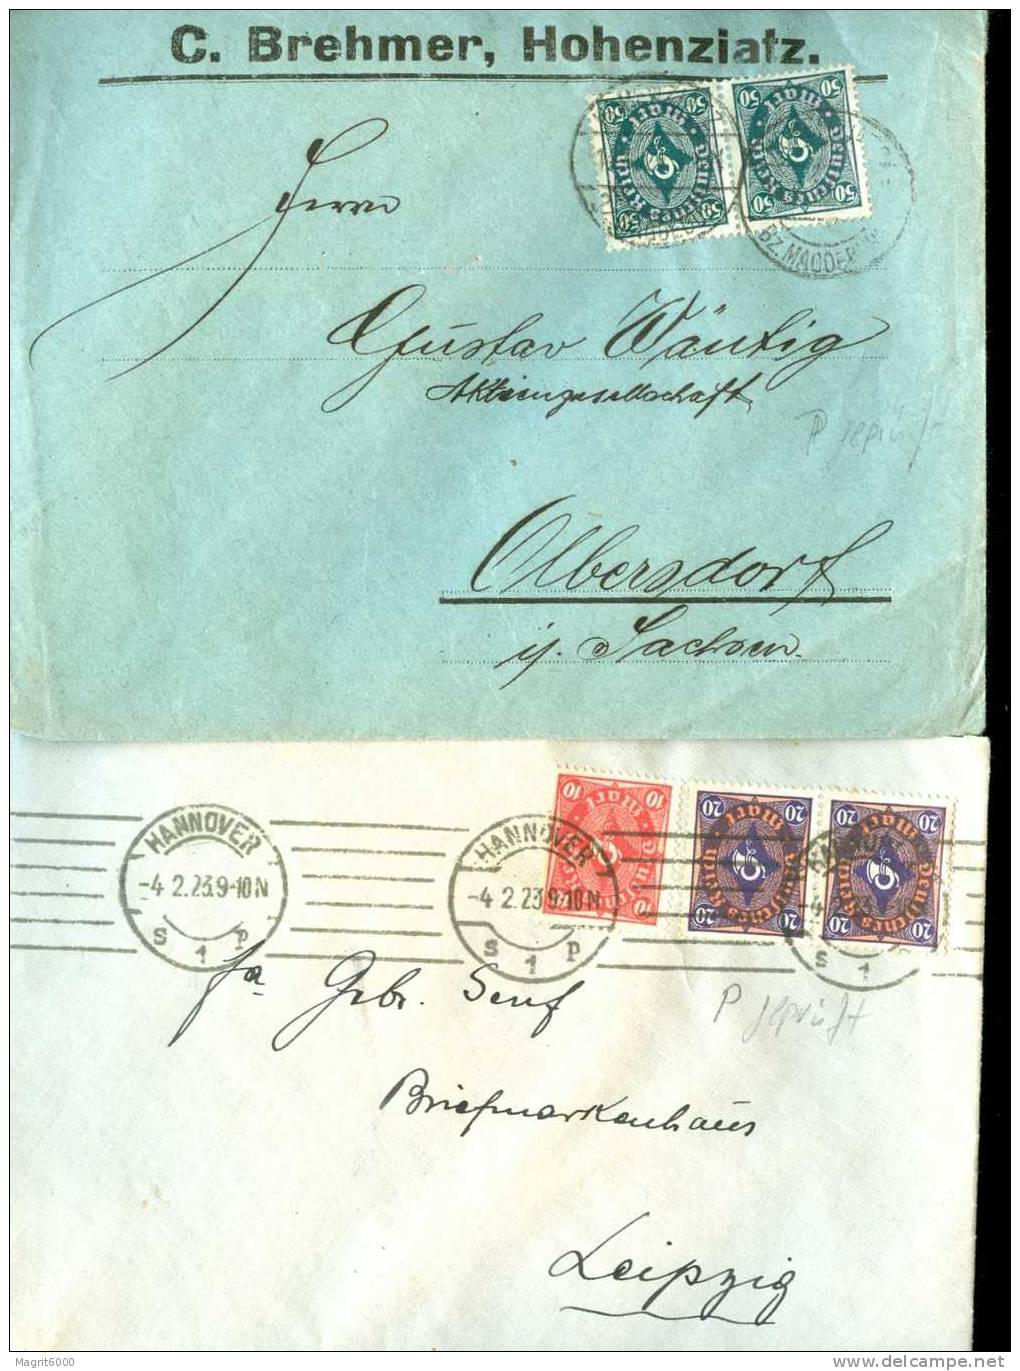 C. Brehmer, Hohenziatz.
50 50 50 50
Deutsches Reich
Mark
50 50 50 50
Deutsches Reich
Mark
BZ. MAGDEB
Herrn
Gustav Wäntig
Aktiengesellschaft
P geprüft
Olbersdorf
i/. Sachsen.
10 10
Mark
20 20 20 20
Deutsches Reich
Mark
20 20 20 20
Deutsches Reich
Mark
HANNOVER
-4.2.23.9-10N
S 1 P
HANNOVER
-4.2.23.9-10N
S 1 P
S 1
fa Gebr. Senf
P geprüft
Briefmarkenhaus
Leipzig
Magrit6000
www.delcampe.net